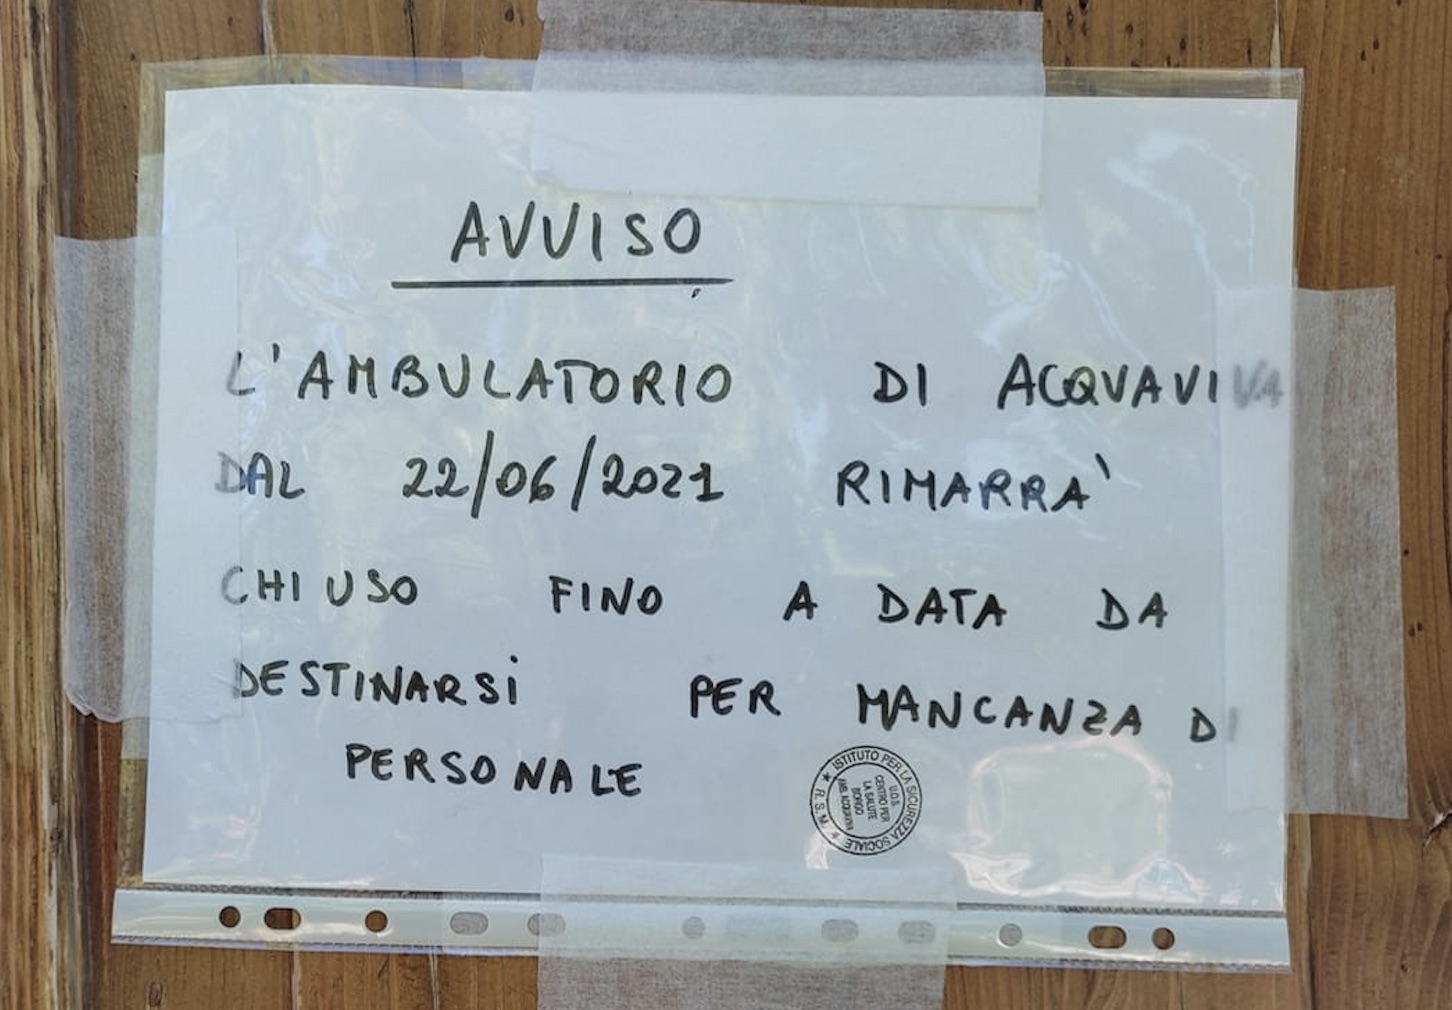 AVVISO
L'AMBULATORIO DI ACQUAVIVA
DAL 22/06/2021 RIMARRA'
CHIUSO FINO A DATA DA
DESTINARSI PER MANCANZA DI
PERSONALE
★ ISTITUTO PER LA SICUREZZA SOCIALE ★ R.S.M.
U.O.S.
CENTRO PER
LA SALUTE
BORGO
AMB. ACQUAVIVA